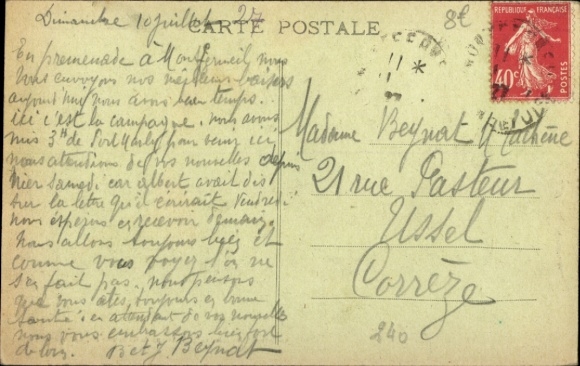 Dimanche 10 juillet 27
CARTE POSTALE
8E
REPUBLIQUE FRANÇAISE
40c
POSTES
En promenade à Montfermeil nous
vous envoyons nos meilleurs baisers
aujourd'hui nous avons beau temps.
ici c'est la campagne. nous avons
mis 3H de pour venir ici
nous attendions de vos nouvelles depuis
hier Samedi car albert avait dis
sur la lettre qu'il écrirait Vendredi
nous espérons en recevoir demain.
nous allons toujours bien et
comme vous voyez l'on ne
s'en fait pas. nous pensons
que vous êtes toujours en bonne
santé en attendant de vos nouvelles
nous vous embrassons bien fort
de loin. B et J Beynat
Madame Beynat
21 rue Pasteur
Ussel
Corrèze
240